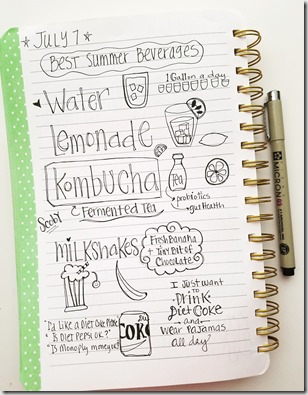 *JULY 7*
Best Summer Beverages
1 Gallon a day
Water
Lemonade
Kombucha
Tea
Scoby
Fermented Tea
probiotics
gut health
Milkshakes
Fresh Banana
+ Tiny Bit of
Chocolate
"I'd like a Diet Coke Please"
"Is Diet Pepsi OK?"
"Is Monoply money ok?"
COKE
I Just want
to
Drink
Diet Coke
and
Wear Pajamas
all day!
MICRON